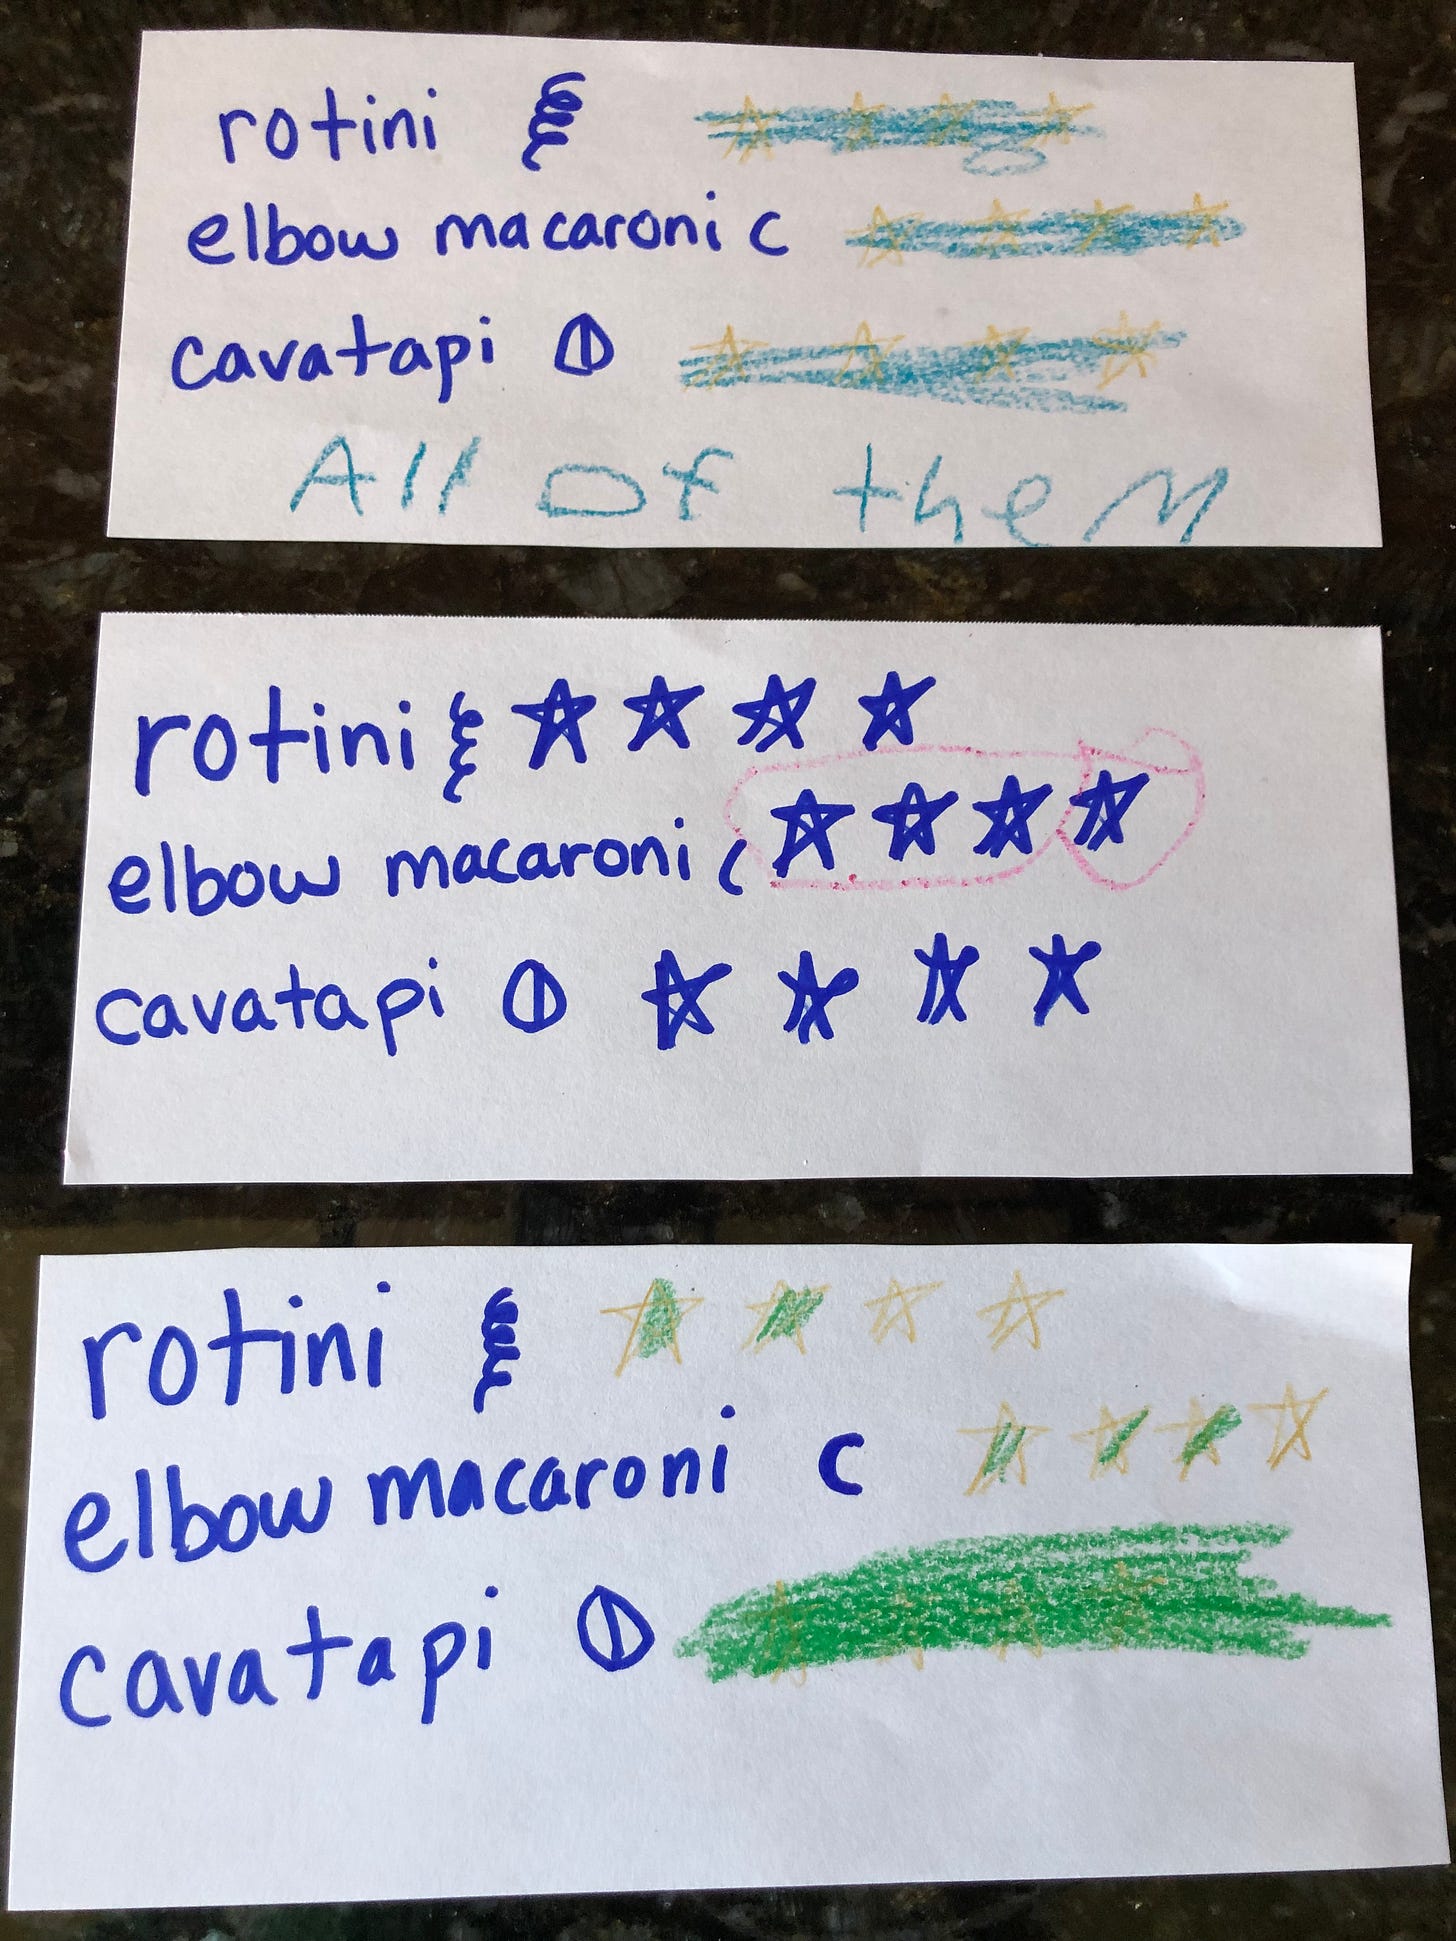 rotini
elbow macaroni c
cavatapi
All of them
rotini
elbow macaroni c
cavatapi
rotini
elbow macaroni c
cavatapi